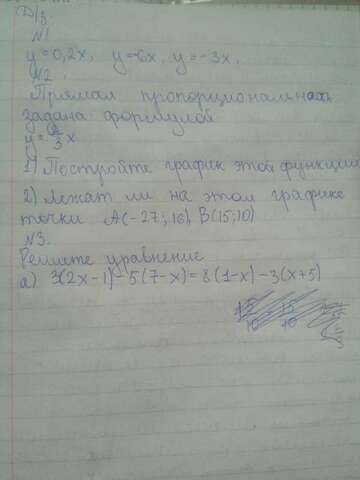 Д/З.
№1
y=0,2x, y=-6x, y=-3x.
№2.
Прямая пропорциональность
задана формулой
y=2/3x
1) Постройте график этой функции
2) Лежат ли на этом графике
точки A(-27; 16), B(15; 10)
№3.
Решите уравнение
а) 3(2x-1)-5(7-x)=8(1-x)-3(x+5)